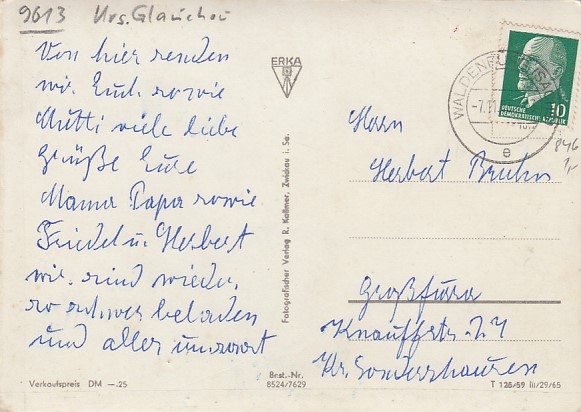 9613 Krs. Glauchau
Von hier senden
wir Euch sowie
Mutti viele liebe
Grüße Eure
Mama Papa sowie
Friedel u. Herbert
wir sind wieder
so schwer beladen
und alles umsonst
Verkaufspreis DM —.25
ERKA
Fotografischer Verlag R. Kallmer, Zwickau i. Sa.
Best.-Nr.
8524/7629
WALDENBURG
-7.
e
10
DEUTSCHE
DEMOKRATISCHE REPUBLIK
846
1,-
Herrn
Herbert Bruhn
Großfurra
Knauffstr. 27
Kr. Sondershausen
T 126/59 III/29/65